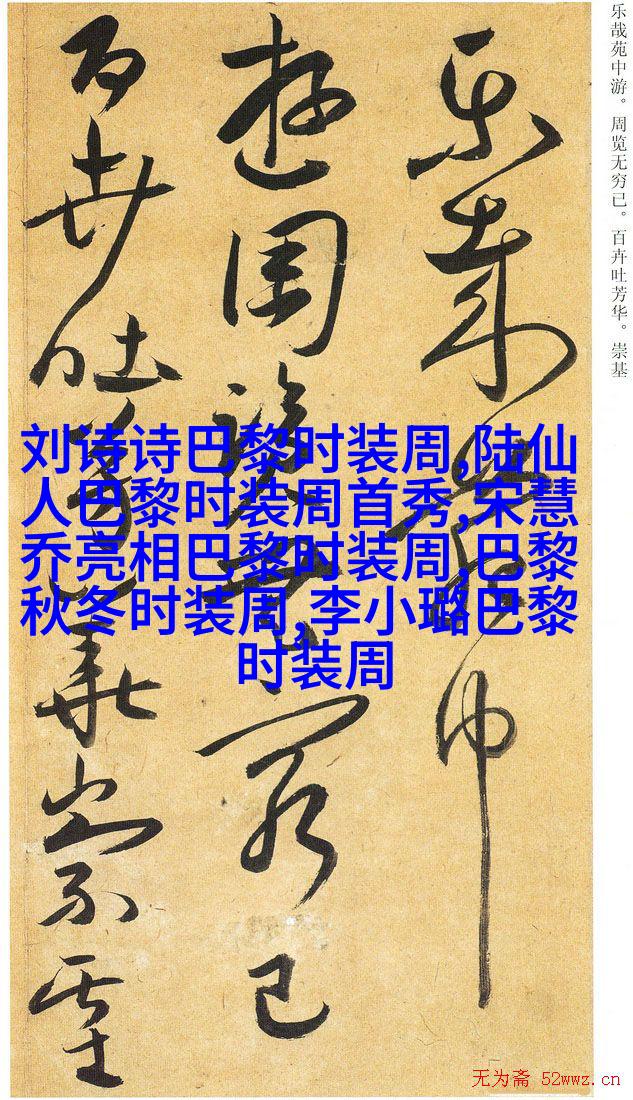 乐哉苑中游。周览无穷已。百卉吐芳华。崇基
樂哉苑中
遊周覽無窮已
百卉吐芳華崇基
刘诗诗巴黎时装周,陆仙
人巴黎时装周首秀,宋慧
乔亮相巴黎时装周,巴黎
秋冬时装周,李小璐巴黎
时装周
无为斋 52wwz.cn